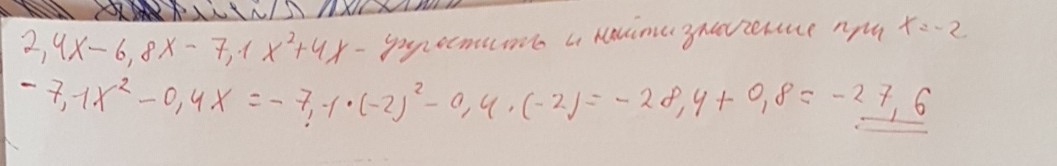 2,4x-6,8x-7,1x²+4x- упростить и найти значение при x=-2
-7,1x²-0,4x=-7,1·(-2)²-0,4·(-2)=-28,4+0,8=-27,6